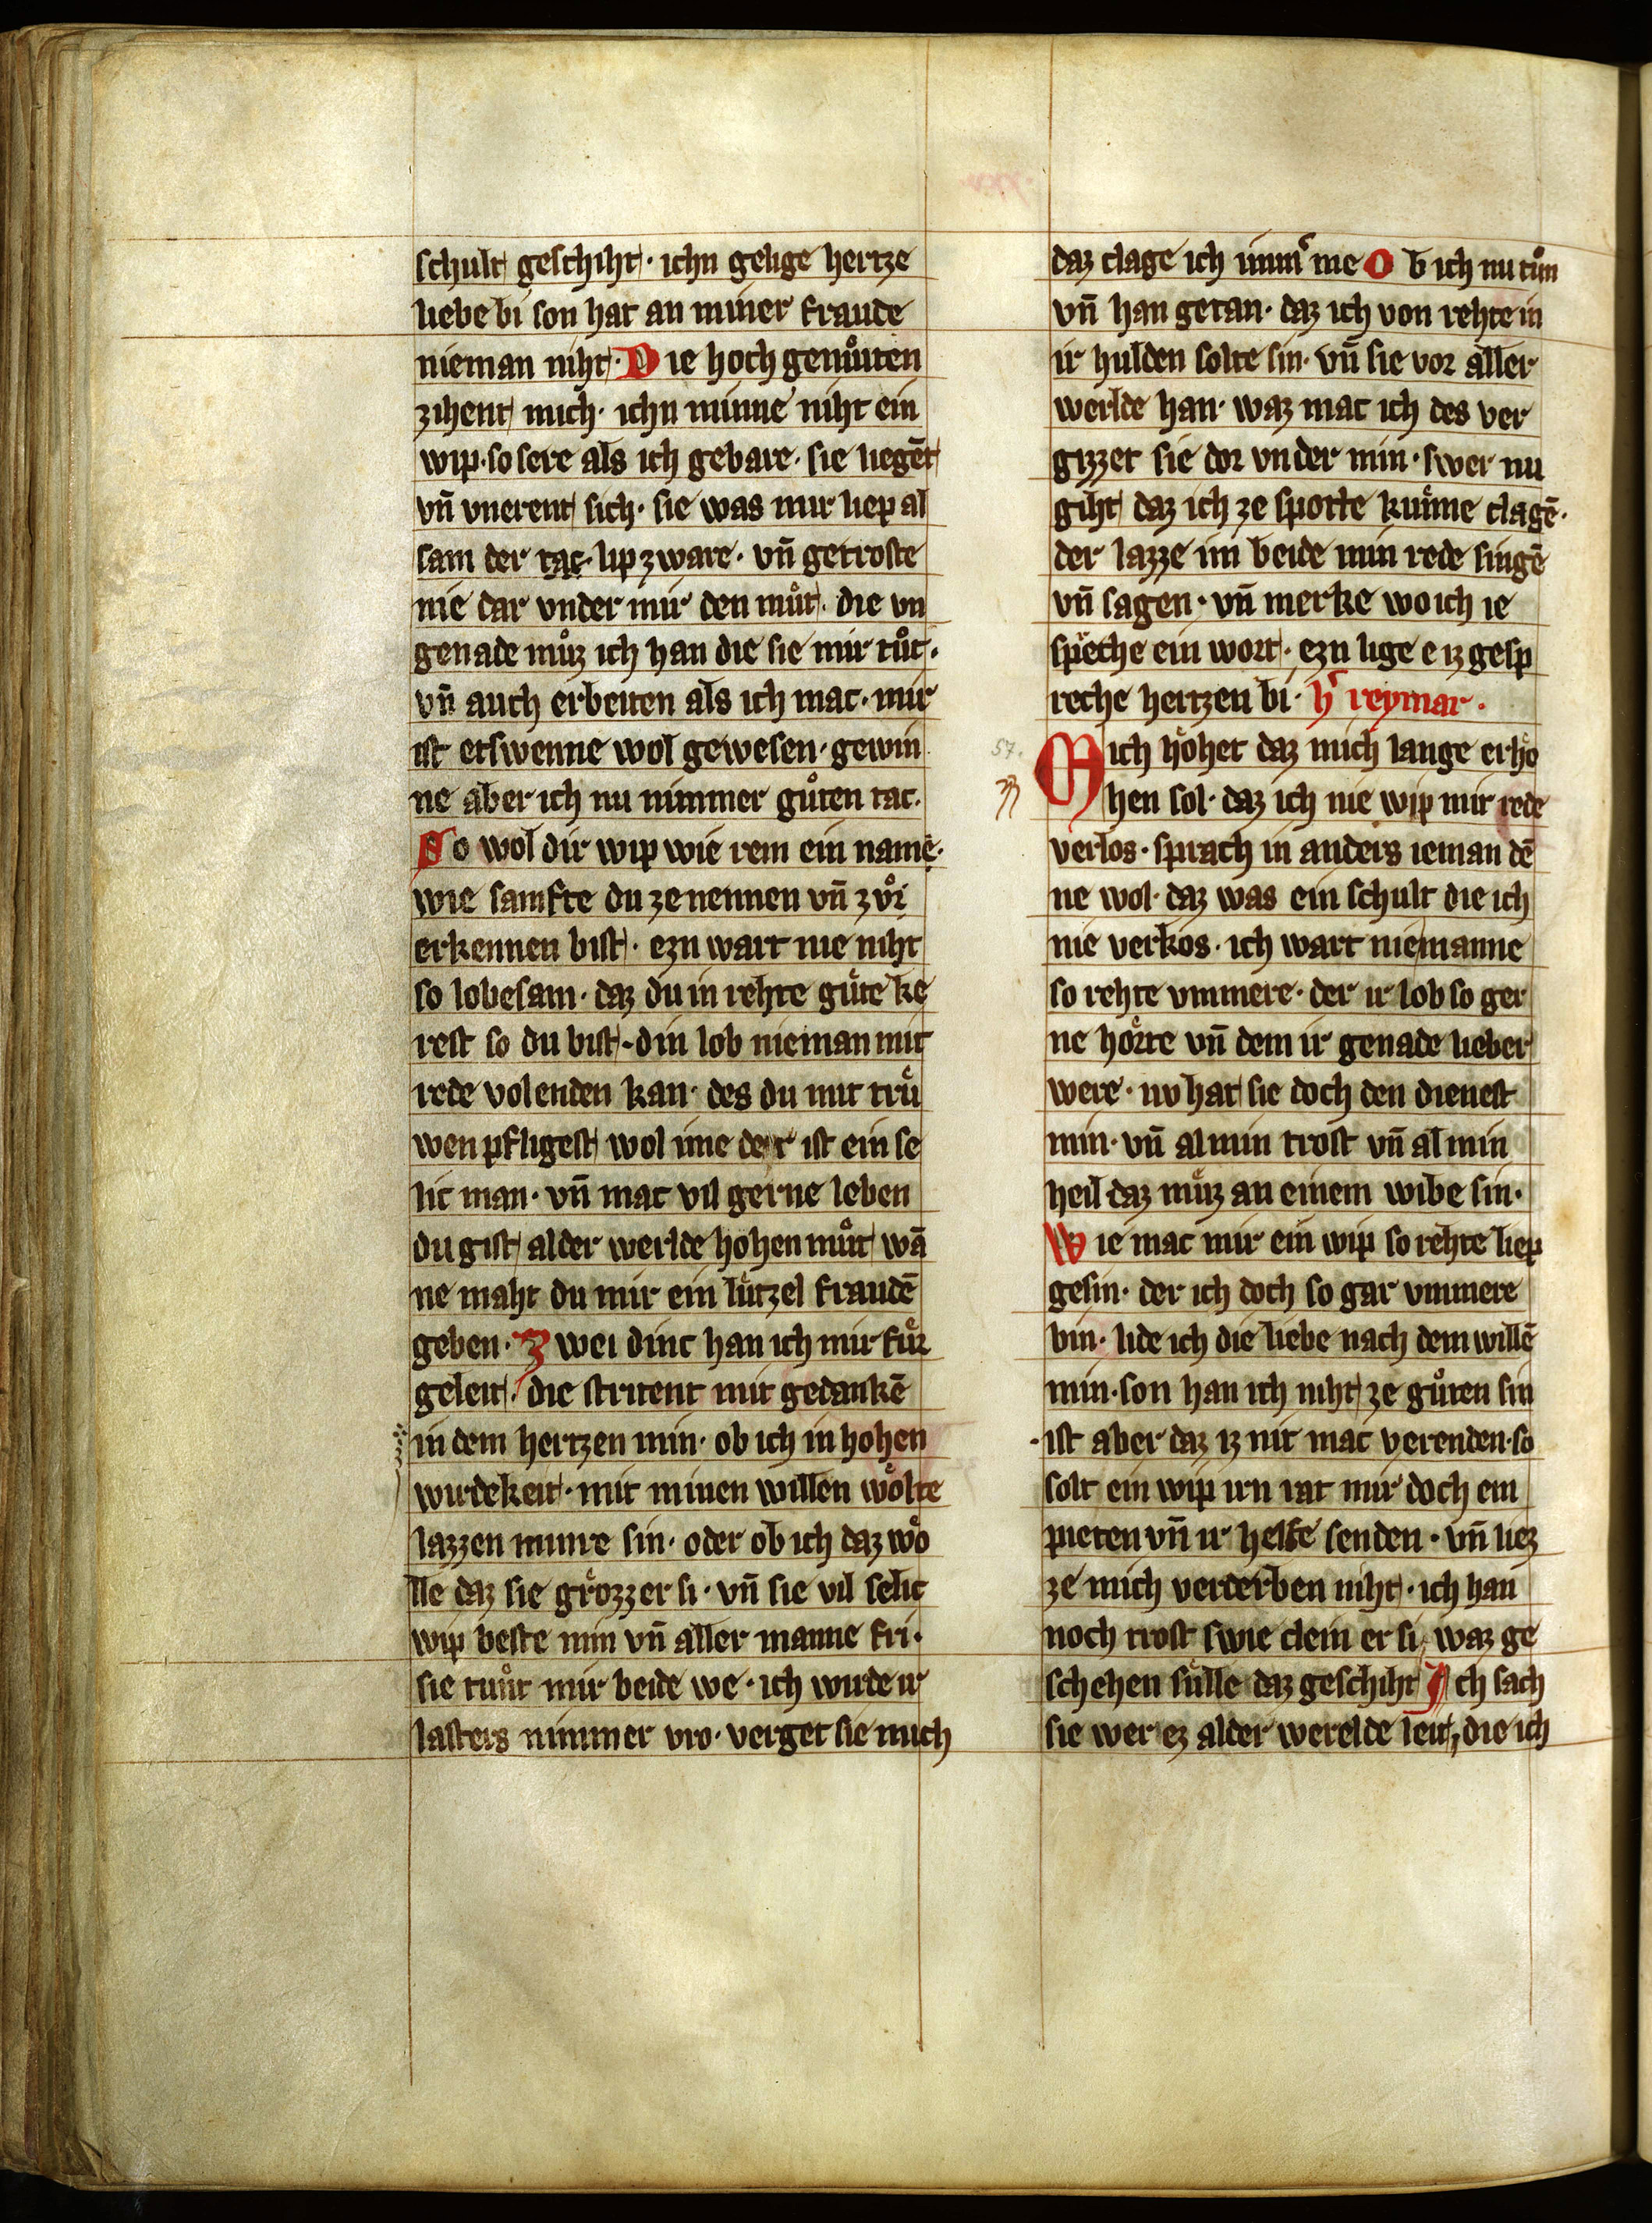 schult geschiht · ichn gelige hertze
liebe bi son hat an miner fraude
nieman niht · Die hoch gemuͦten
zihent mich · ichn minne niht ein
wip · so sere als ich gebare · sie liegēt
vn̄ vnerent sich · sie was mir liep al
sam der tac · lip zware · vn̄ getroste
nie dar vnder mir den muͦt · die vn
genade muͦz ich han die sie mir tuͦt ·
vn̄ auch erbeiten als ich mac · mir
ist etswenne wol gewesen · gewin
ne aber ich nu nimmer guͦten tac ·
So wol dir wip wie rein ein name ·
wie samfte du ze nennen vn̄ zvͦ
erkennen bist · ezn wart nie niht
so lobesam · daz du in rehte guͤte ke
rest so du bist · din lob nieman mit
rede volenden kan · des du mit truͤ
wen pfligest wol ime der ist ein se
lic man · vn̄ mac vil gerne leben
du gist al der werlde hohen muͦt wā
ne maht du mir ein luͤtzel fraudē
geben · Zwei dinc han ich mir fuͤr
geleit · die stritent mit gedankē
in dem hertzen min · ob ich in hohen
wirdekeit · mit minen willen woͤlte
lazzen minre sin · oder ob ich daz wo
lle daz sie groͤzzer si · vn̄ sie vil selic
wip beste min vn̄ aller manne fri ·
sie tuͦt mir beide we · ich wirde ir
lasters nimmer vro · verget sie mich
daz clage ich imm̾ me Ob ich nu tuͦn
vn̄ han getan · daz ich von rehte in
ir hulden solte sin · vn̄ sie vor aller
werlde han · waz mac ich des ver
gizzet sie dor vnder min · swer nu
giht daz ich ze spotte kuͤnne clagē ·
der lazze im beide min rede singē
vn̄ sagen · vn̄ merke wo ich ie
spreche ein wort · ezn lige e iz gesp
reche hertzen bi · h̾ reymar ·
57.
Mich hoͤhet daz mich lange erhoͤ
hen sol · daz ich nie wip mit rede
verlos · sprach in anders ieman dē
ne wol · daz was ein schult die ich
nie verkos · ich wart nie manne
so rehte vnmere · der ir lob so ger
ne hoͤrte vn̄ dem ir genade lieber
were · nv hat sie doch den dienest
min · vn̄ al min trost vn̄ al min
heil daz muͤz an einem wibe sin ·
Wie mac mir ein wip so rehte liep
gesin · der ich doch so gar vnmere
bin · lide ich die liebe nach dem willē
min · son han ich niht ze guͦten sin
· ist aber daz iz nit mac verenden · so
solt ein wip irn rat mir doch en
pieten vn̄ ir helfe senden · vn̄ liez
ze mich verderben niht · ich han
noch trost swie clein er si, waz ge
schehen suͤlle daz geschiht Ich sach
sie wer ez al der werelde leit, die ich